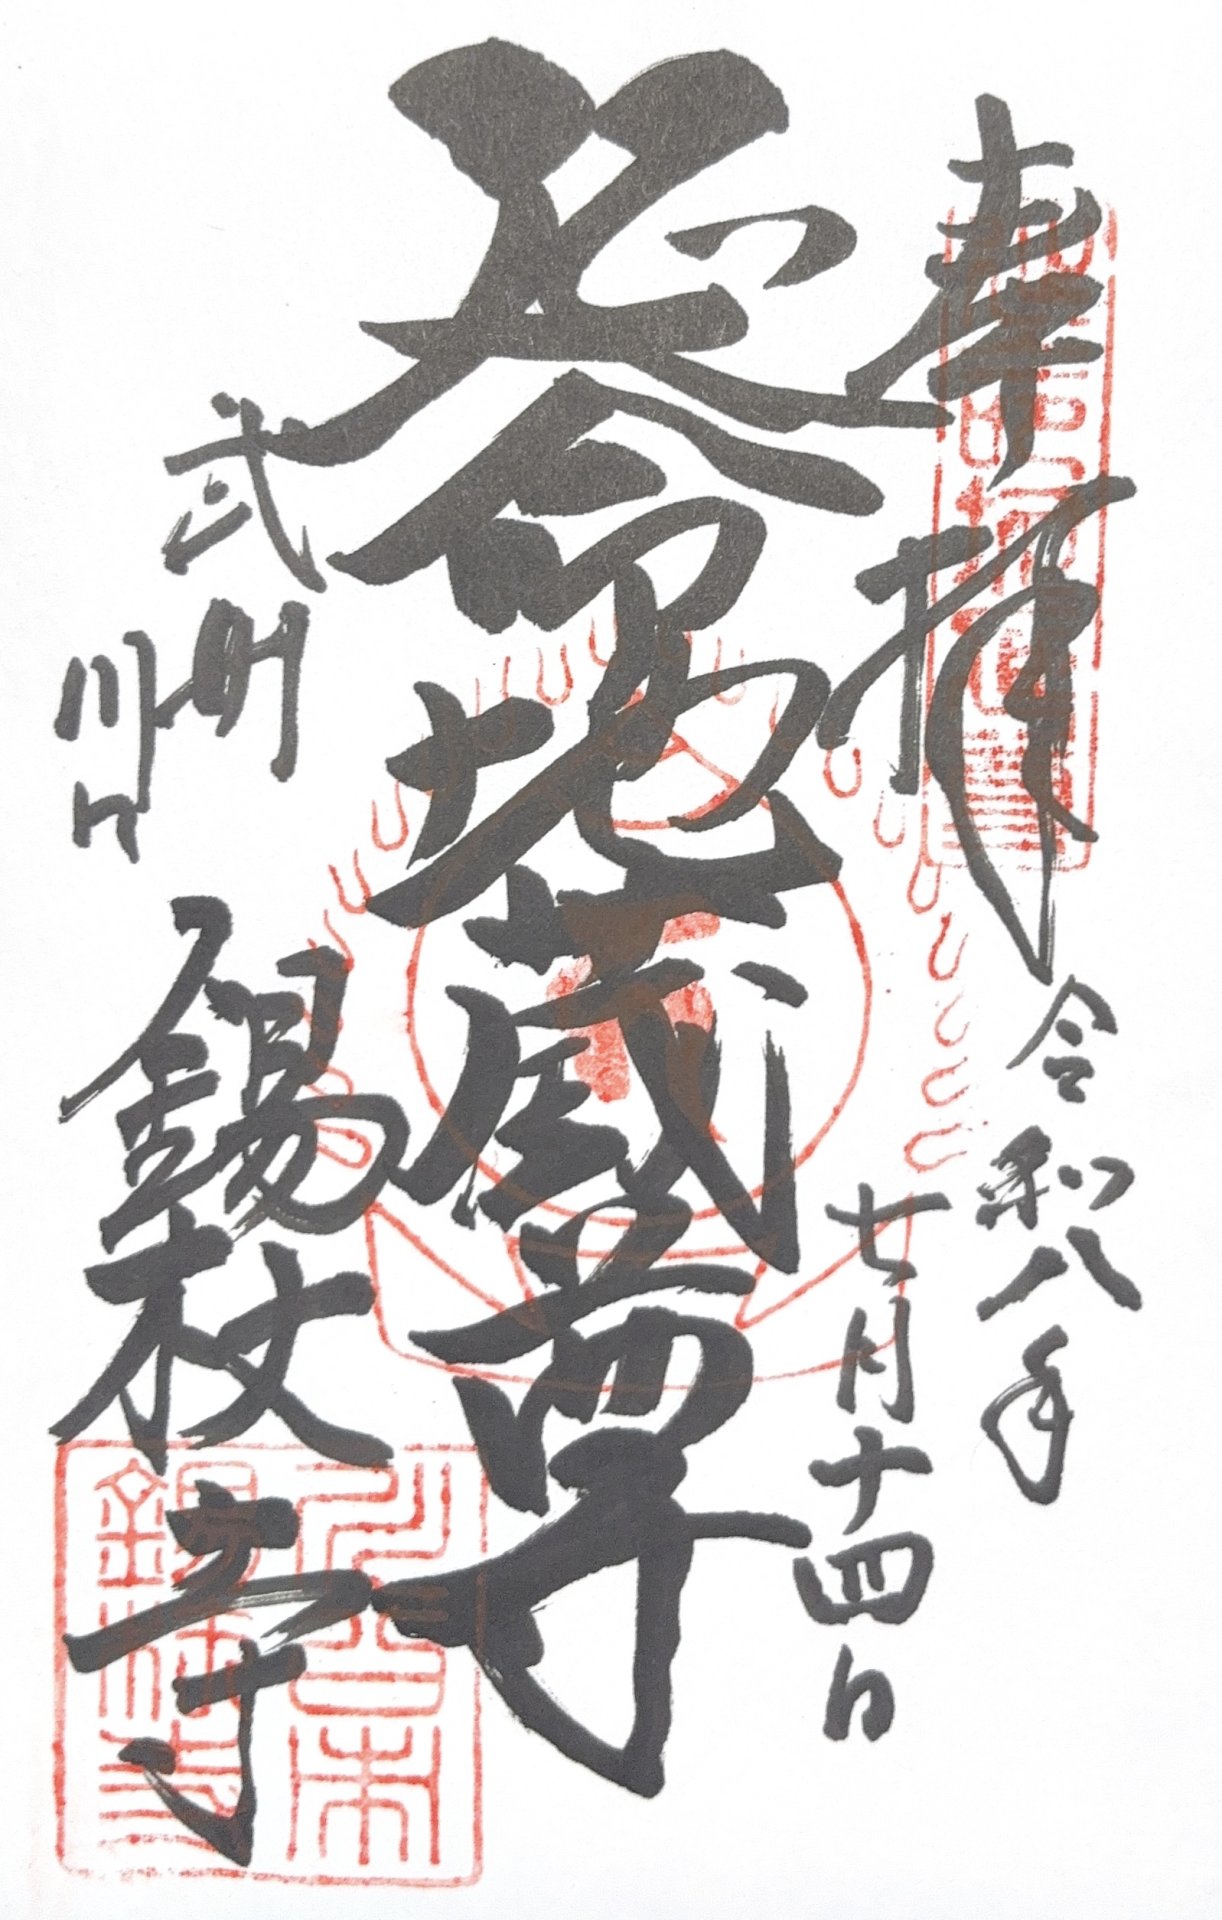 奉拝
令和八年
七月十四日
延命地蔵尊
武州
川口
錫杖寺